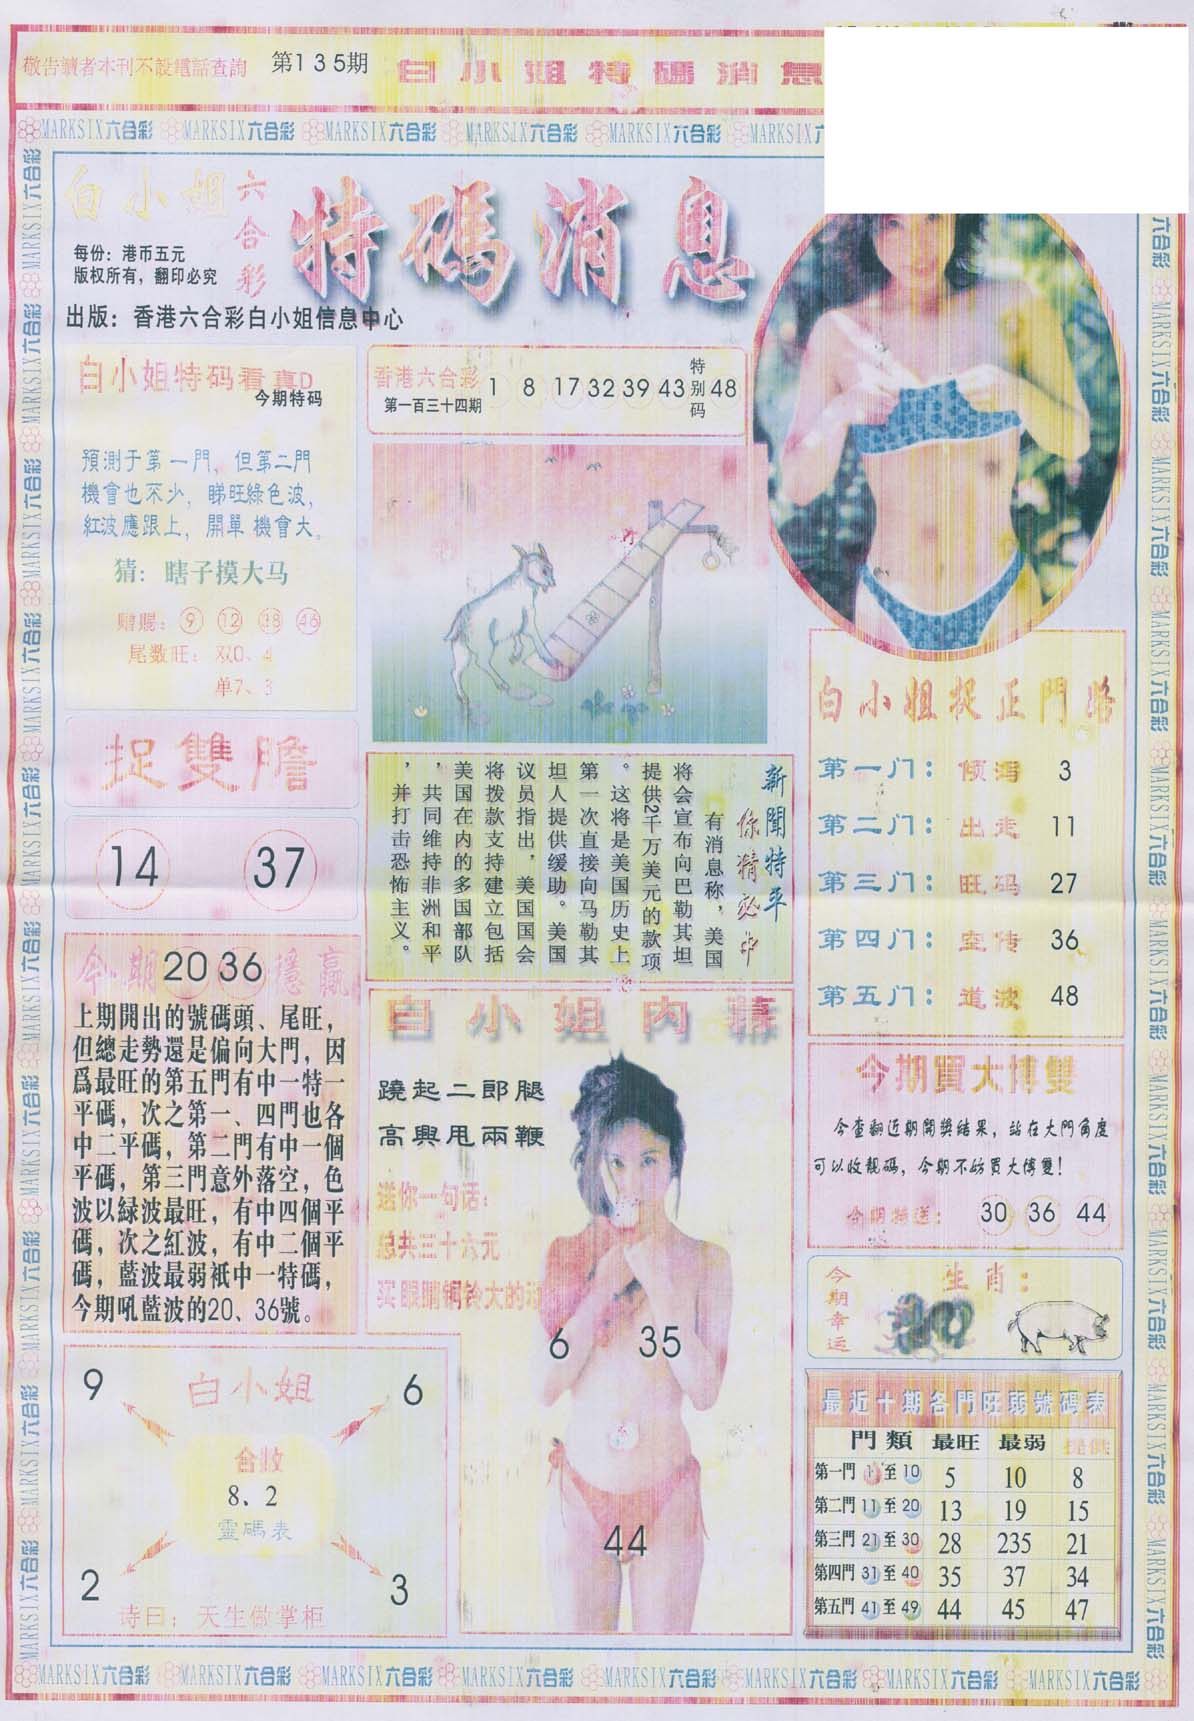 敬告讀者本刊不設電話查詢
第135期
白小姐特碼消息
MARKSIX六合彩 MARKSIX六合彩 MARKSIX六合彩 MARKSIX六合彩 MARKSIX六合彩 MARKSIX
白小姐
六合彩
特碼消息
每份：港币五元
版权所有，翻印必究
出版：香港六合彩白小姐信息中心
白小姐特码看真D
今期特码
預測于第一門，但第二門
機會也不少，睇旺綠色波，
紅波應跟上，開單機會大。
猜：瞎子摸大马
赠賜：9 12 38 46
尾数旺：双0、4
单7、3
香港六合彩
第一百三十四期
1 8 17 32 39 43 特别码 48
捉雙膽
14 37
今期 20 36 穩贏
上期開出的號碼頭、尾旺，
但總走勢還是偏向大門，因
爲最旺的第五門有中一特一
平碼，次之第一、四門也各
中二平碼，第二門有中一個
平碼，第三門意外落空，色
波以緑波最旺，有中四個平
碼，次之紅波，有中二個平
碼，藍波最弱衹中一特碼，
今期吼藍波的20、36號。
新聞特平
你猜必中
有消息称，美国
将会宣布向巴勒其坦
提供2千万美元的款项
。这将是美国历史上
第一次直接向马勒其
坦人提供缓助。美国
议员指出，美国国会
将拨款支持建立包括
美国在内的多国部队
，共同维持非洲和平
，并打击恐怖主义。
白小姐内猜
蹺起二郎腿
高興甩兩鞭
送你一句话：
总共三十六元
买眼睛铜铃大的
6 35
44
白小姐捉正門路
第一门：倾泻 3
第二门：出走 11
第三门：旺码 27
第四门：空传 36
第五门：道波 48
今期買大博雙
今查翻近期開獎結果，站在大門角度
可以收靓碼，今期不妨買大博雙！
今期特送：30 36 44
今期幸运
生肖：
最近十期各門旺弱號碼表
門類 最旺 最弱 提供
第一門 1 至 10 5 10 8
第二門 11 至 20 13 19 15
第三門 21 至 30 28 235 21
第四門 31 至 40 35 37 34
第五門 41 至 49 44 45 47
9 白小姐 6
合收
8、2
靈碼表
2 3
诗曰：天生做掌柜
MARKSIX六合彩 MARKSIX六合彩 MARKSIX六合彩 MARKSIX六合彩 MARKSIX六合彩 MARKSIX六合彩 MARKSIX六合彩 MARKSIX六合彩